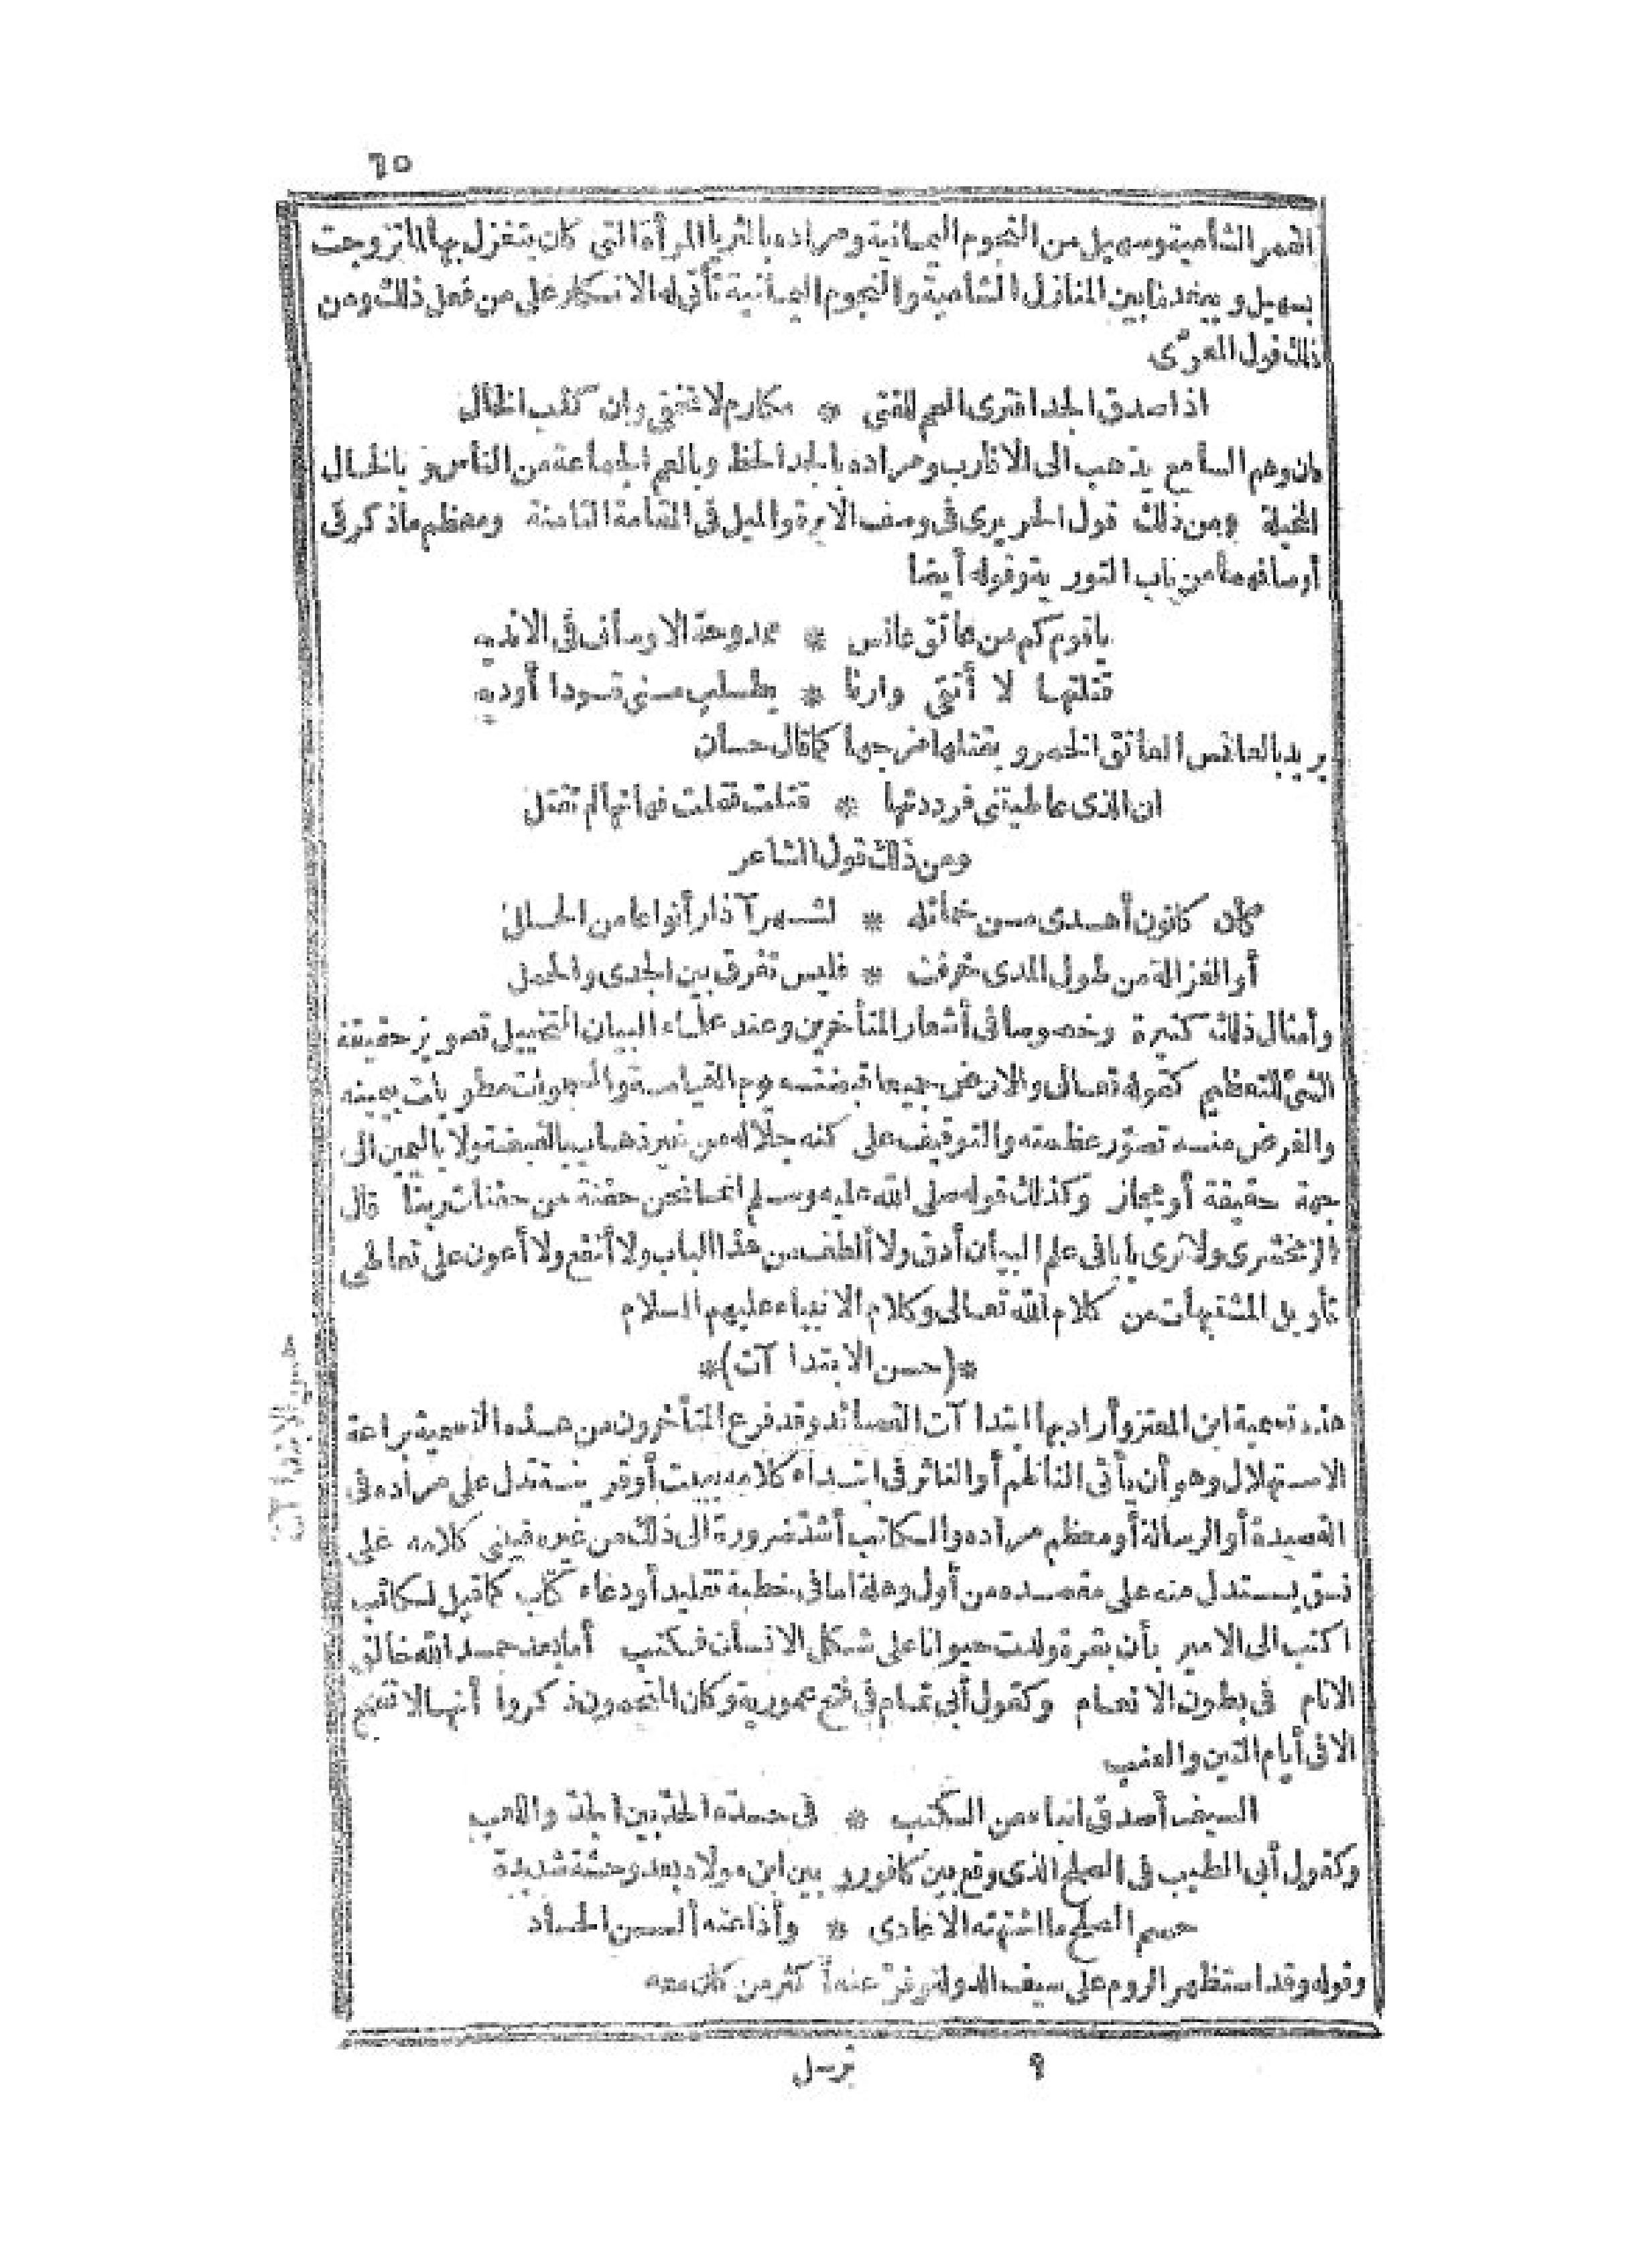 ٦٥
القمر الشأمية وسهيل من النجوم اليمانية ومراده بالثريا المرأة التي كان يتغزل بها لما تزوجت
بسهيل وبعد ما بين المنازل الشأمية والنجوم اليمانية تأتى له الانكار على من فعل ذلك ومن
ذلك قول المعرّى
اذا صدق الجد افترى العم للفتى * مكارم لا تخفى وان كذب الخال
فان وهم السامع يذهب الى الاقارب ومراده بالجد الحظ وبالعم الجماعة من الناس وبالخال
المخيلة ومن ذلك قول الحريرى فى وصف الابرة والميل فى المقامة الثامنة ومعظم ما ذكر فى
أوصافهما من باب التورية وقوله أيضا
يا قوم كم من عاتق عانس * ممدوحة الاوصاف فى الانديه
قتلتها لا أتقى وارثا * يطلب منى قودا أوديه
يريد بالعانس العاتق الخمر وبقتلها مزجها كما قال حسان
ان الذى عاطيتنى فرددتها * قتلت قتلت فهاتها لم تقتل
ومن ذلك قول الشاعر
كأن كانون أهدى من خمائله * لشهر آذار أنواعا من الحلل
أو الغزالة من طول المدى خرفت * فليس تفرق بين الجدى والحمل
وأمثال ذلك كثيرة وخصوصا فى أشعار المتأخرين وعند علماء البيان التخييل تصوير حقيقة
الشئ للتعظيم كقوله تعالى والارض جميعا قبضته يوم القيامة والسموات مطويات بيمينه
والغرض منه تصوّر عظمته والتوقيف على كنه جلاله من غير ذهاب بالقبضة ولا باليمين الى
جهة حقيقة أو مجاز وكذلك قوله صلى الله عليه وسلم انما نحن حفنة من حفنات ربنا قال
الزمخشرى ولا نرى بابا فى علم البيان أدق ولا ألطف من هذا الباب ولا أنفع ولا أعون على تعاطى
تأويل المشتبهات من كلام الله تعالى وكلام الانبياء عليهم السلام
*(حسن الابتدا آت)*
هذه تسمية ابن المعتز وأراد بها ابتدا آت القصائد وقد فرع المتأخرون من هذه التسمية براعة
الاستهلال وهو أن يأتى الناظم أو الناثر فى ابتداء كلامه ببيت أو قرينة تدل على مراده فى
القصيدة أو الرسالة أو معظم مراده والكاتب أشد ضرورة الى ذلك من غيره فيبنى كلامه على
نسق يستدل منه على مقصده من أول وهلة اما فى خطبة تقليد أو دعاء كتاب كما قيل لكاتب
اكتب الى الامير بأن بقرة ولدت حيوانا على شكل الانسان فكتب أما بعد حمد الله خالق
الانام فى بطون الانعام وكقول أبى تمام فى فتح عمورية وكان المنجمون ذكروا أنها لا تفتح
الا فى أيام التين والعنب
السيف أصدق انباء من الكتب * فى حده الحد بين الجد واللعب
وكقول أبى الطيب فى الصلح الذى وقع بين كافور وبين ابن مولاه بعد وحشة شديدة
حسم الصلح ما اشتهته الاعادى * وأذاعته ألسن الحساد
وقوله وقد استظهر الروم على سيف الدولة وفرّ عنه أكثر من كان معه
٩ ترسل
حسن الابتدا آت